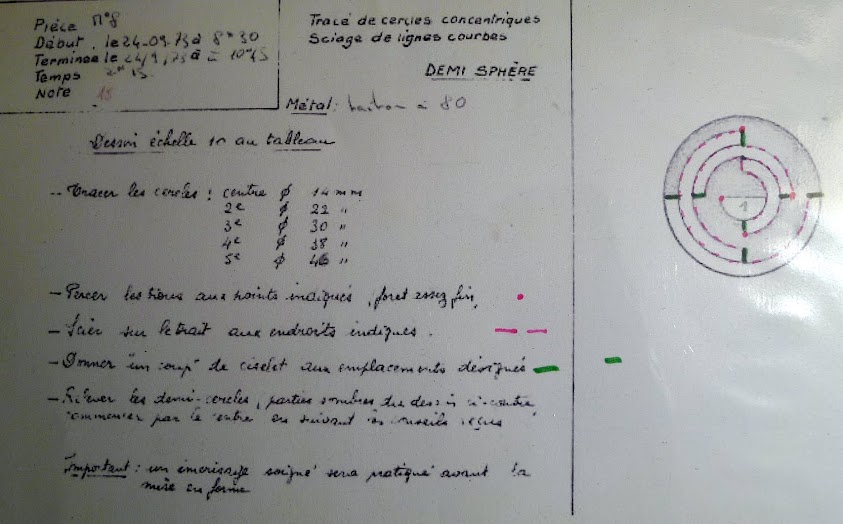 Pièce n°8
Début . le 24-09.73 à 8h30
Terminée le 24/9/73 à 10h45
Temps 2h15.
Note 15
Tracé de cercles concentriques
Sciage de lignes courbes
DEMI SPHÈRE
Métal : laiton à 80
Dessin échelle au tableau
-- Tracer les cercles : centre φ 14 mm
2e φ 22 "
3e φ 30 "
4e φ 38 "
5e φ 46 "
- Percer les trous aux points indiqués, foret assez fin,
- Scier sur le trait aux endroits indiqués .
- Donner "un coup" de ciselet aux emplacements désignés
- Relever les demi-cercles, parties sombres du dessin ci-contre
commencer par le centre en suivant les conseils reçus
Important : un émerisage soigné sera pratiqué avant la
mise en forme
1